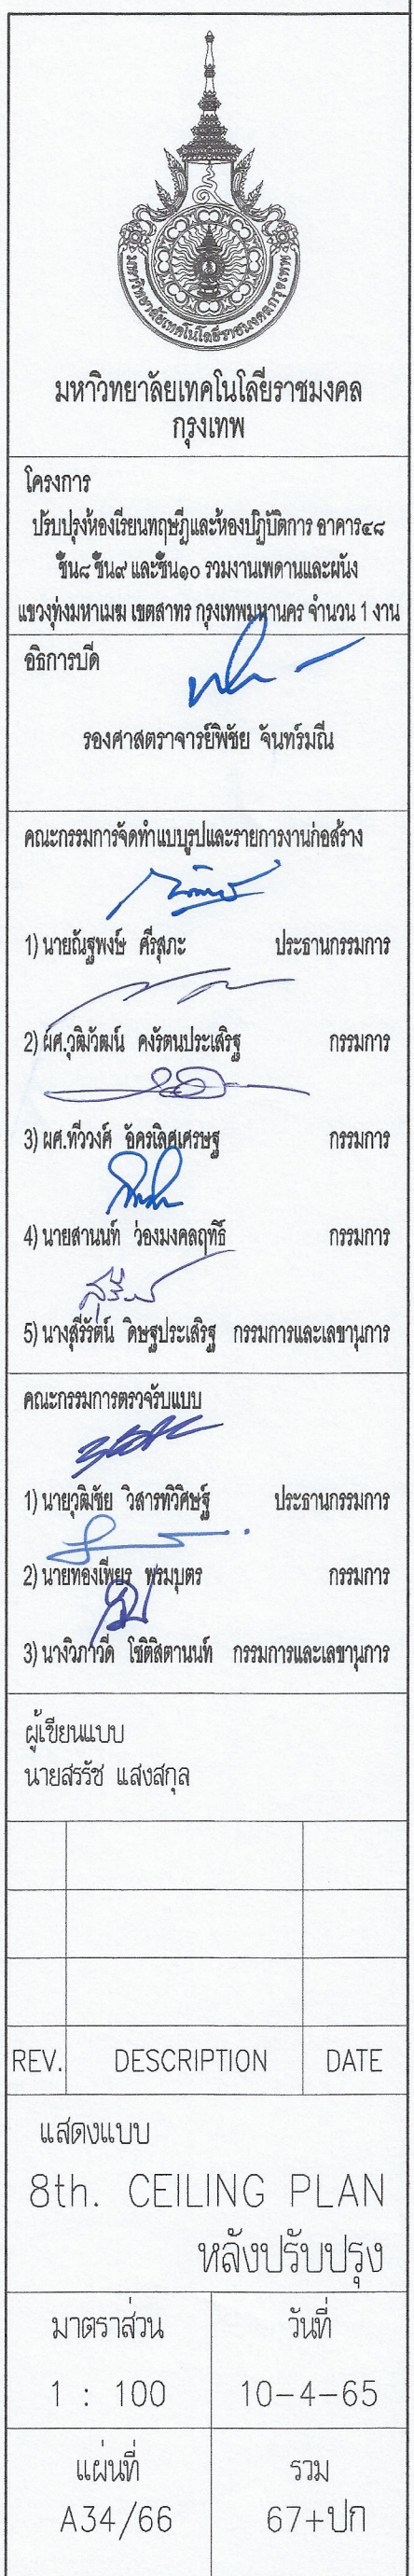 มหาวิทยาลัยเทคโนโลยีราชมงคลกรุงเทพ
มหาวิทยาลัยเทคโนโลยีราชมงคล
กรุงเทพ
โครงการ
ปรับปรุงห้องเรียนทฤษฎีและห้องปฏิบัติการ อาคาร๔๘
ชั้น๘ ชั้น๙ และชั้น๑๐ รวมงานเพดานและผนัง
แขวงทุ่งมหาเมฆ เขตสาทร กรุงเทพมหานคร จำนวน 1 งาน
อธิการบดี
รองศาสตราจารย์พิชัย จันทร์มณี
คณะกรรมการจัดทำแบบรูปและรายการงานก่อสร้าง
1) นายณัฐพงษ์ ศีรุสภะ ประธานกรรมการ
2) ผศ.วุฒิวัฒน์ คงรัตนประเสริฐ กรรมการ
3) ผศ.ทีววงศ์ อัครเลิศเศรษฐ กรรมการ
4) นายสานนท์ ว่องมงคลฤทธิ์ กรรมการ
5) นางสุรีรัตน์ ดิษฐประเสริฐ กรรมการและเลขานุการ
คณะกรรมการตรวจรับแบบ
1) นายวุฒิชัย วิสารทวิศิษฐ์ ประธานกรรมการ
2) นายทองเพียร พรมบุตร กรรมการ
3) นางวิภาวดี โชติสิตานนท์ กรรมการและเลขานุการ
ผู้เขียนแบบ
นายสรรัช แสงสกุล
REV. DESCRIPTION DATE
แสดงแบบ
8th. CEILING PLAN
หลังปรับปรุง
มาตราส่วน วันที่
1 : 100 10-4-65
แผ่นที่ รวม
A34/66 67+ปก